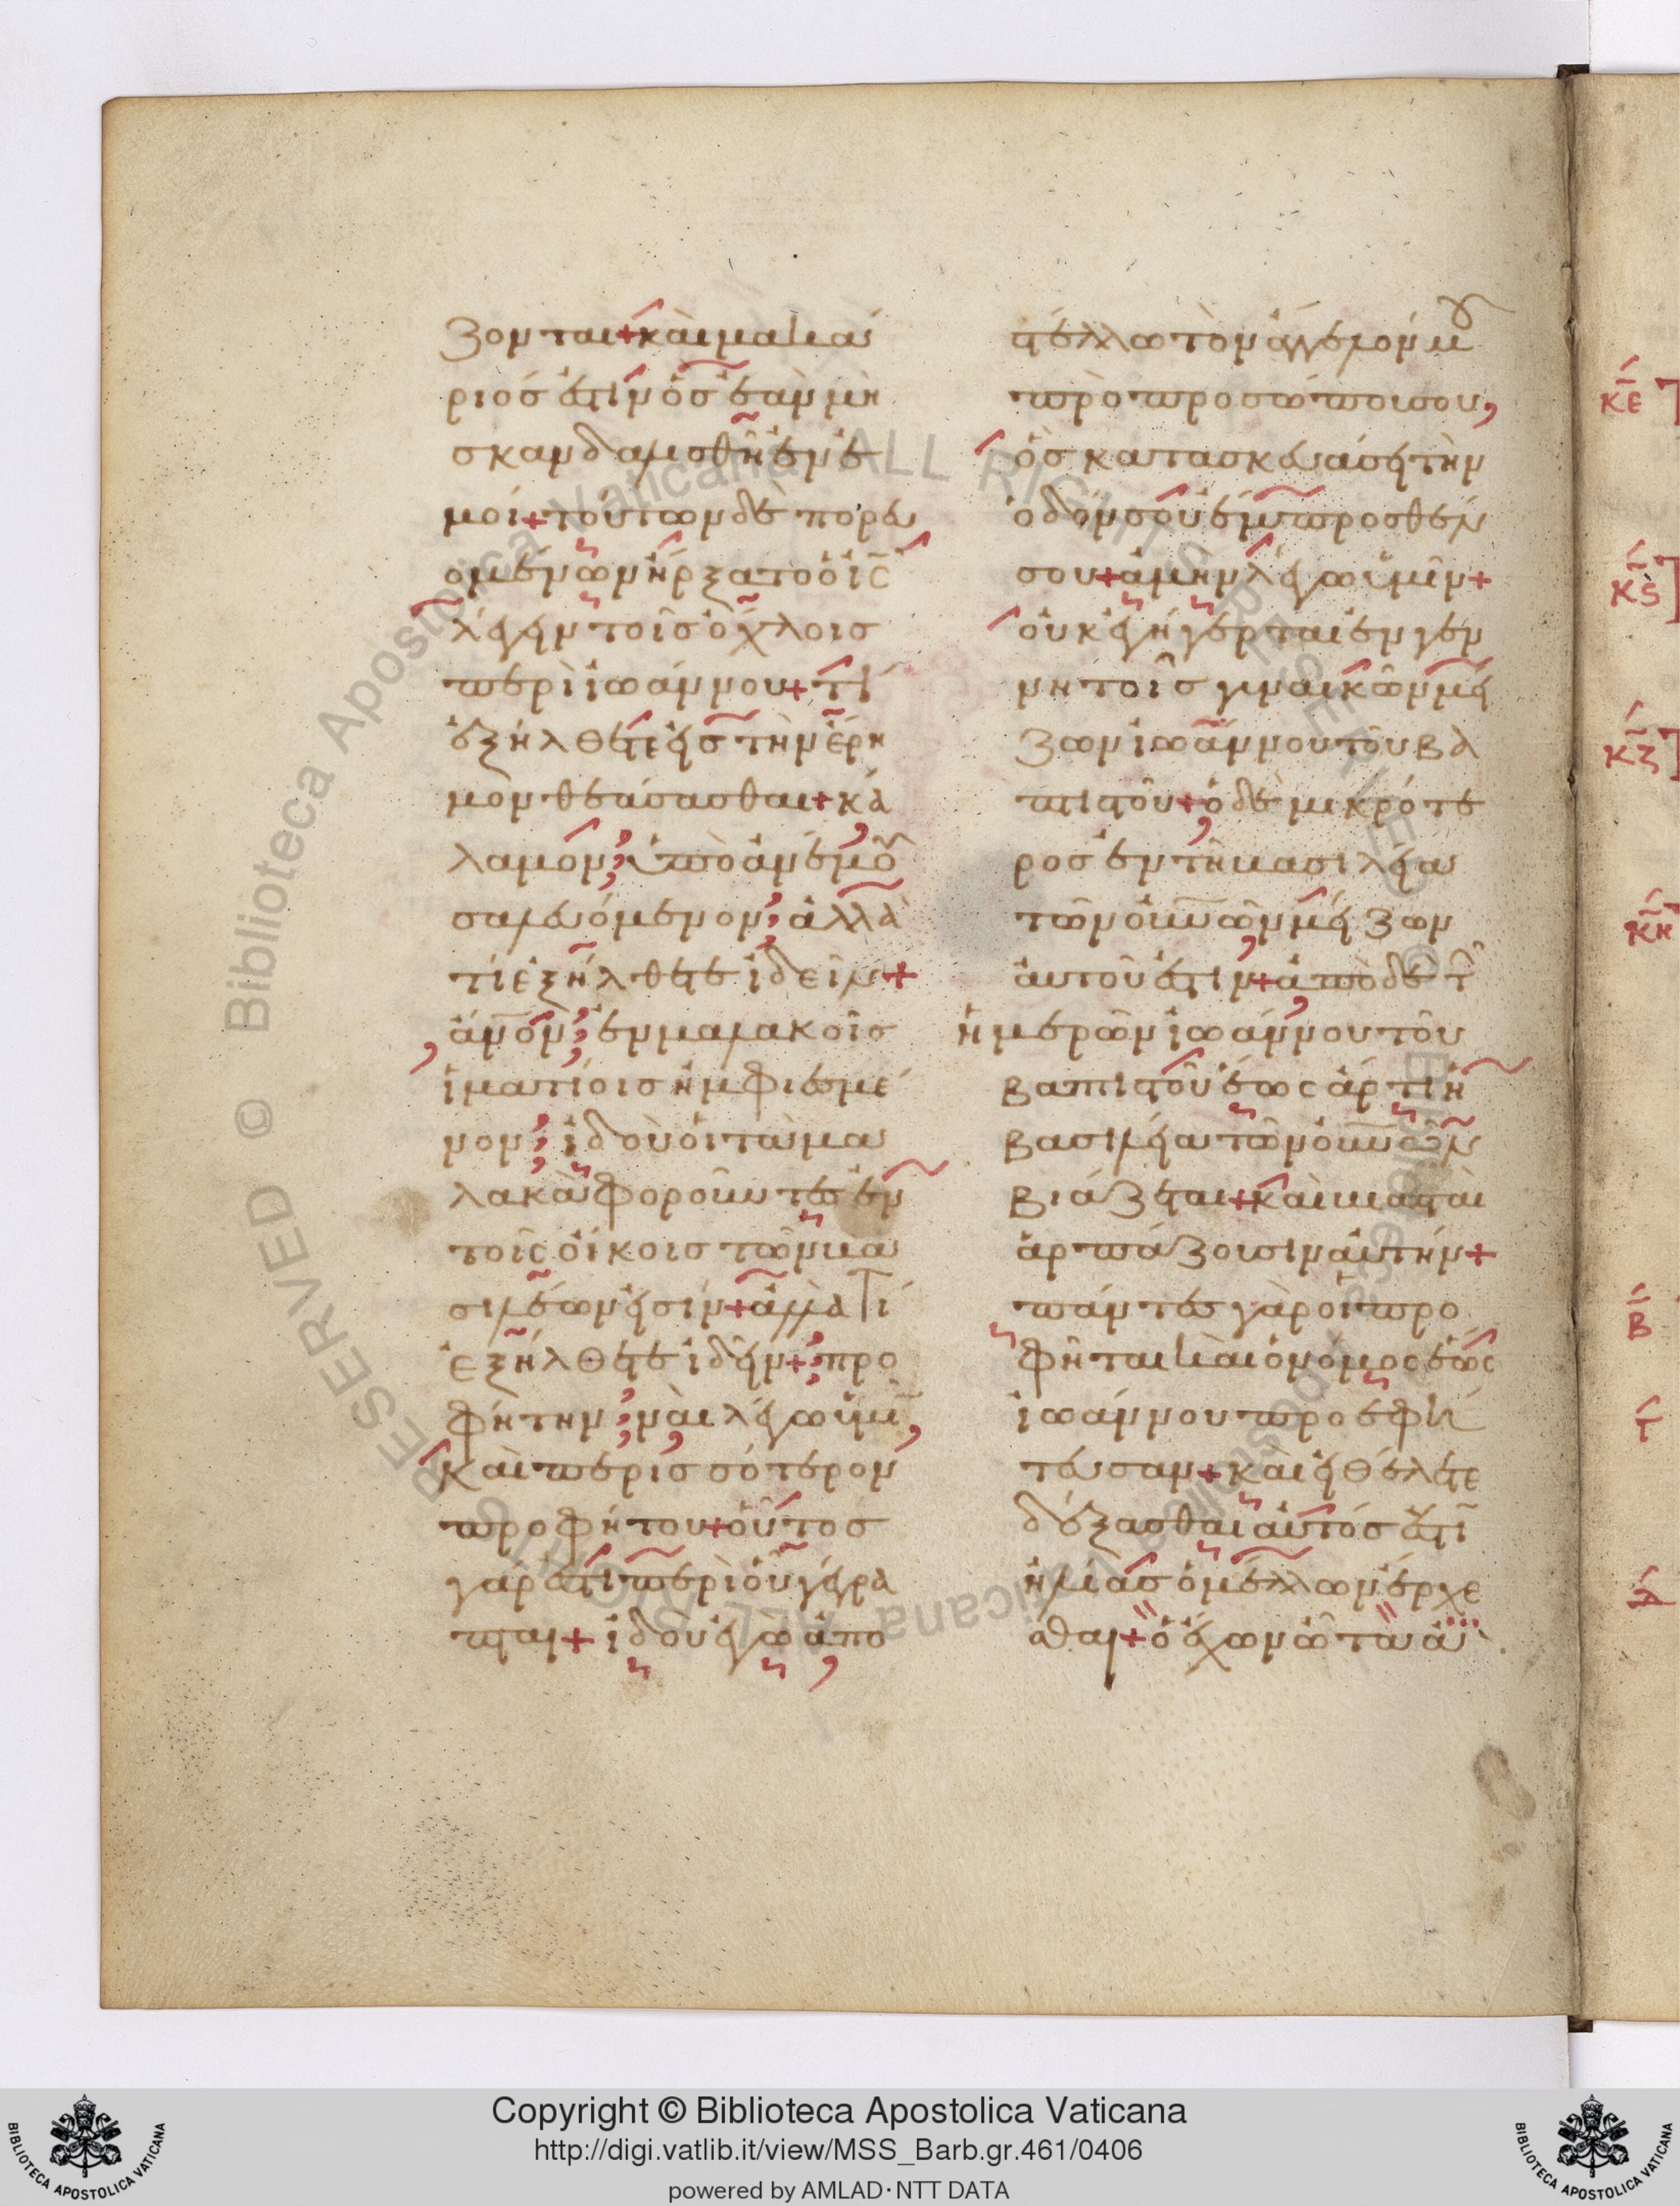 ζονται + καὶ μακά
ριός ἐστιν ὃς ἐὰν μὴ
σκανδαλισθῆ ἐν ἐ
μοί + τούτων δὲ πορευ
ομένων ἤρξατο ὁ ἰ̅ς̅
λέγειν τοῖς ὄχλοις
περὶ ἰωάννου + τί
ἐξήλθετε εἰς τὴν ἔρη
μον θεάσασθαι + κά
λαμον; ὑπὸ ἀνέμου
σαλευόμενον; ἀλλὰ
τί ἐξήλθετε ἰδεῖν +
ἄ̅ν̅ο̅ν̅; ἐν μαλακοῖς
ἱματίοις ἠμφιεσμέ
νον; ἰδοὺ οἱ τὰ μα
λακὰ φοροῦντες ἐν
τοῖς οἴκοις τῶν βα
σιλέων εἰσίν + ἀλλὰ τί
ἐξήλθετε ἰδεῖν +; προ
φήτην; ναὶ λέγω ὑμῖν,
καὶ περισσότερον
προφήτου + οὗτος
γάρ ἐστι περὶ οὗ γέγρα
πται + ἰδοὺ ἐγὼ ἀπο
στέλλω τὸν ἄγγελόν μου
πρὸ προσώπου σου,
ὃς κατασκευάσει τὴν
ὁδόν σου ἔμπροσθέν
σου + ἀμὴν λέγω ὑμῖν +
οὐκ ἐγήγερται ἐν γεν
νητοῖς γυναικῶν μεί
ζων ἰωάννου τοῦ βα
πτιστοῦ + ὁ δὲ μικρότε
ρος ἐν τῆ βασιλεία
τῶν ο̅υ̅ν̅ῶ̅ν̅ μείζων
αὐτοῦ ἐστιν + ἀπὸ δὲ τῶν
ἡμερῶν ἰωάννου τοῦ
βαπτιστοῦ ἕως ἄρτι ἡ
βασιλεία τῶν ο̅υ̅ν̅ῶ̅ν̅
βιάζεται + καὶ βιασταὶ
ἁρπάζουσιν αὐτήν +
πάντες γὰρ οἱ προ
φῆται καὶ ὁ νόμος ἕως
ἰωάννου προεφή
τευσαν + καὶ εἰ θέλετε
δέξασθαι αὐτός ἐστιν
ἠλίας ὁ μέλλων ἔρχε
σθαι + ὁ ἔχων ὦτα ἀ
κ̅ε̅
κ̅ς̅
κ̅ζ̅
κ̅η̅
β̅
γ̅
δ̅
Copyright © Biblioteca Apostolica Vaticana
http://digi.vatlib.it/view/MSS_Barb.gr.461/0406
powered by AMLAD·NTT DATA
BIBLIOTECA APOSTOLICA VATICANA
BIBLIOTECA APOSTOLICA VATICANA